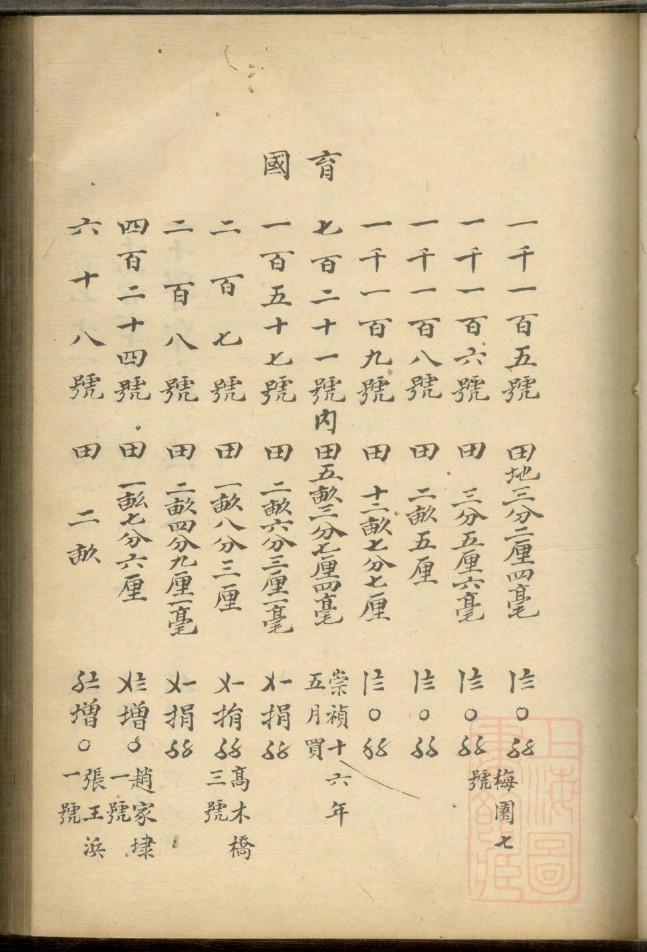 育國
一千一百五號 田地三分二厘四毫 梅園七號
一千一百六號 田 三分五厘六毫
一千一百八號 田 二畝五厘
一千一百九號 田 十二畝七分七厘
七百二十一號內 田五畝三分七厘四毫 崇禎十六年五月買
一百五十七號 田 二畝六分三厘一毫 捐
二百七號 田 一畝八分三厘 捐 高木橋三號
二百八號 田 二畝四分九厘一毫 捐
四百二十四號 田 一畝七分六厘 增 趙家埭一號
六十八號 田 二畝 增 張王浜一號
上海圖